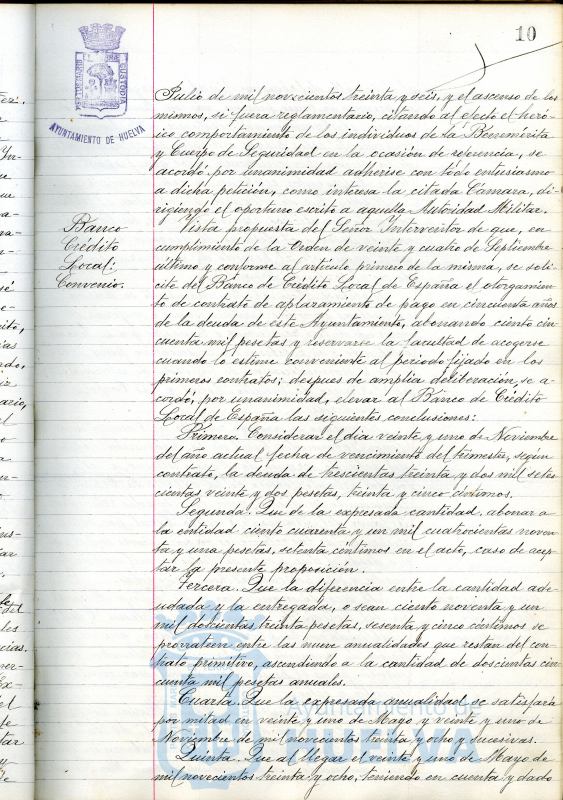 10
AYUNTAMIENTO DE HUELVA
Julio de mil novecientos treinta y seis, y el ascenso de los
mismos, si fuera reglamentario, citando al efecto el heró-
ico comportamiento de los individuos de la Benemérita
y Cuerpo de Seguridad en la ocasión de referencia, se
acordó por unanimidad adherirse con todo entusiasmo
a dicha petición, como interesa la citada Cámara, di-
rigiendo el oportuno escrito a aquella Autoridad Militar.
Banco
Crédito
Local:
Convenio.
Vista propuesta del Señor Interventor de que, en
cumplimiento de la Orden de veinte y cuatro de Septiembre
último y conforme al artículo primero de la misma, se soli-
cite del Banco de Crédito Local de España el otorgamien-
to de contrato de aplazamiento de pago en cincuenta años
de la deuda de este Ayuntamiento, abonando ciento cin
cuenta mil pesetas y reservarse la facultad de acogerse
cuando lo estime conveniente al periodo fijado en los
primeros contratos; despues de amplia deliberación, se a-
cordó, por unanimidad, elevar al Banco de Crédito
Local de España las siguientes conclusiones:
Primera. Considerar el dia veinte y uno de Noviembre
del año actual fecha de vencimiento del trimestre, según
contrato, la deuda de trescientas treinta y dos mil sete
cientas veinte y dos pesetas, treinta y cinco céntimos.
Segunda. Que de la expresada cantidad, abonar a
la entidad ciento cuarenta y un mil cuatrocientas noven
ta y una pesetas, setenta céntimos en el acto, caso de acep
tar la presente proposición.
Tercera. Que la diferencia entre la cantidad ade-
udada y la entregada, o sean ciento noventa y un
mil doscientas treinta pesetas, sesenta y cinco céntimos se
prorrateen entre las nueve anualidades que restan del con
trato primitivo, ascendiendo a la cantidad de doscientas cin
cuenta mil pesetas anuales.
Cuarta. Que la expresada anualidad se satisfará
por mitad en veinte y uno de Mayo y veinte y uno de
Noviembre de mil novecientos treinta y ocho y sucesivas.
Quinta. Que al llegar el veinte y uno de Mayo de
mil novecientos treinta y ocho, teniendo en cuenta y dado
Ayuntamiento de
HUELVA